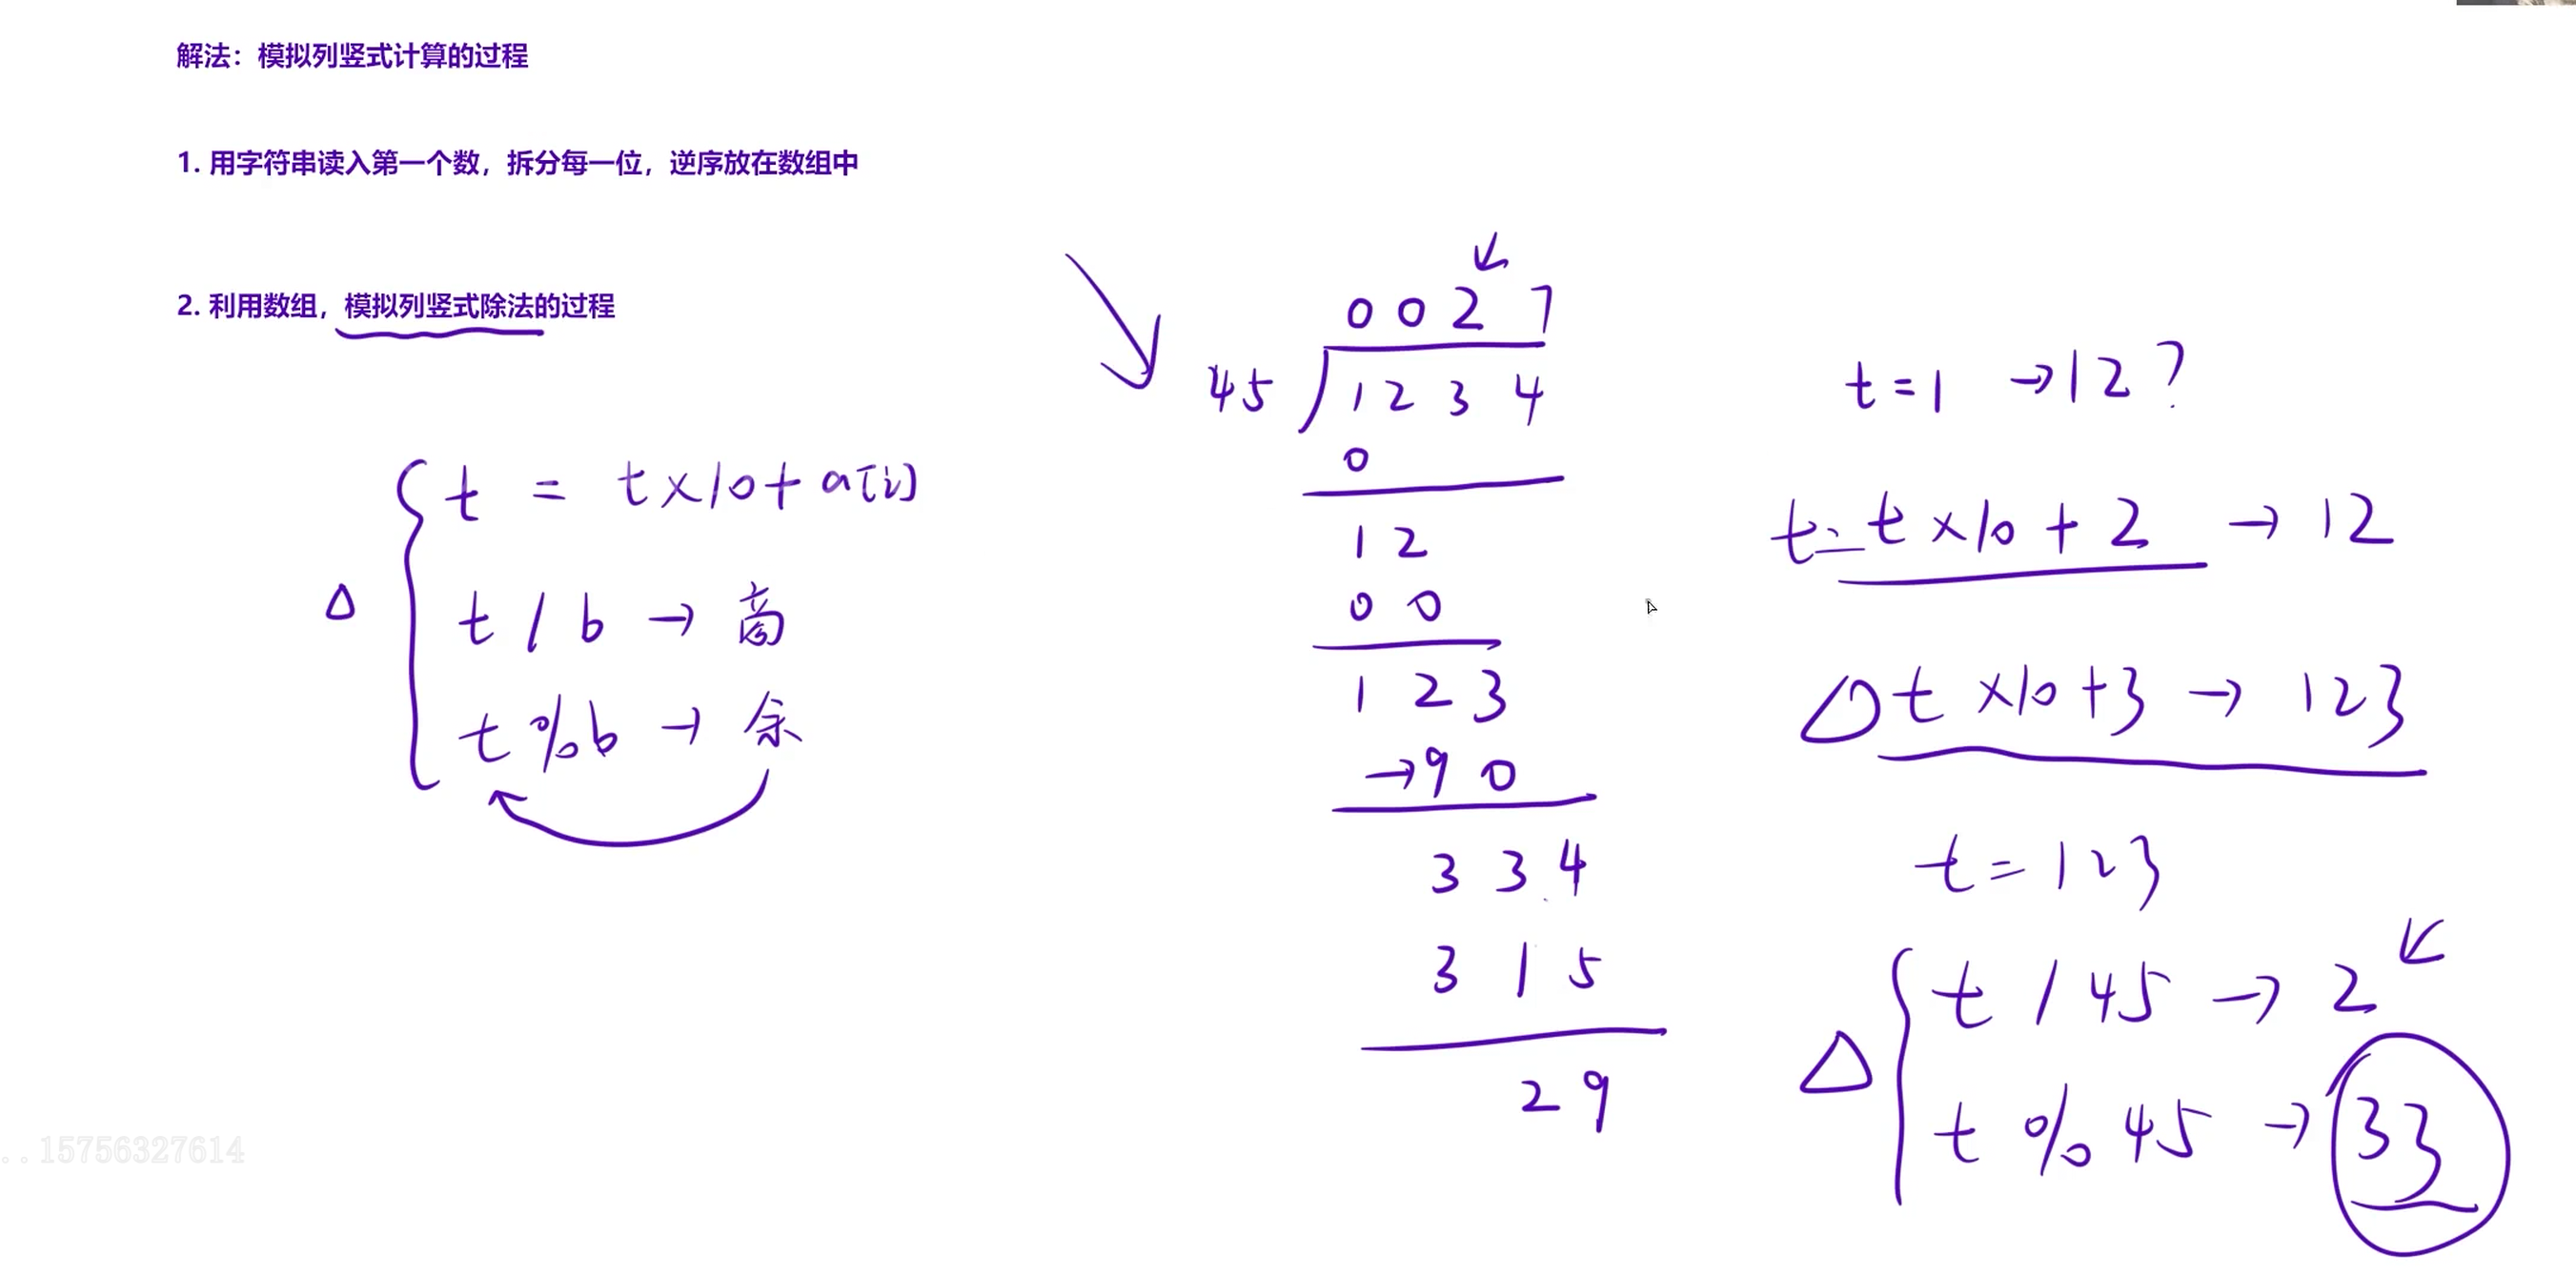 解法：模拟列竖式计算的过程
1. 用字符串读入第一个数，拆分每一位，逆序放在数组中
2. 利用数组，模拟列竖式除法的过程
t = t×10+a[i]
Δ
t / b → 商
t % b → 余
0 0 2 7
45 1 2 3 4
0
1 2
0 0
1 2 3
→ 9 0
3 3 4
3 1 5
2 9
t=1 → 12?
t= t×10+2 → 12
Δ t×10+3 → 123
t=123
t / 45 → 2
Δ
t % 45 → 33
..15756327614